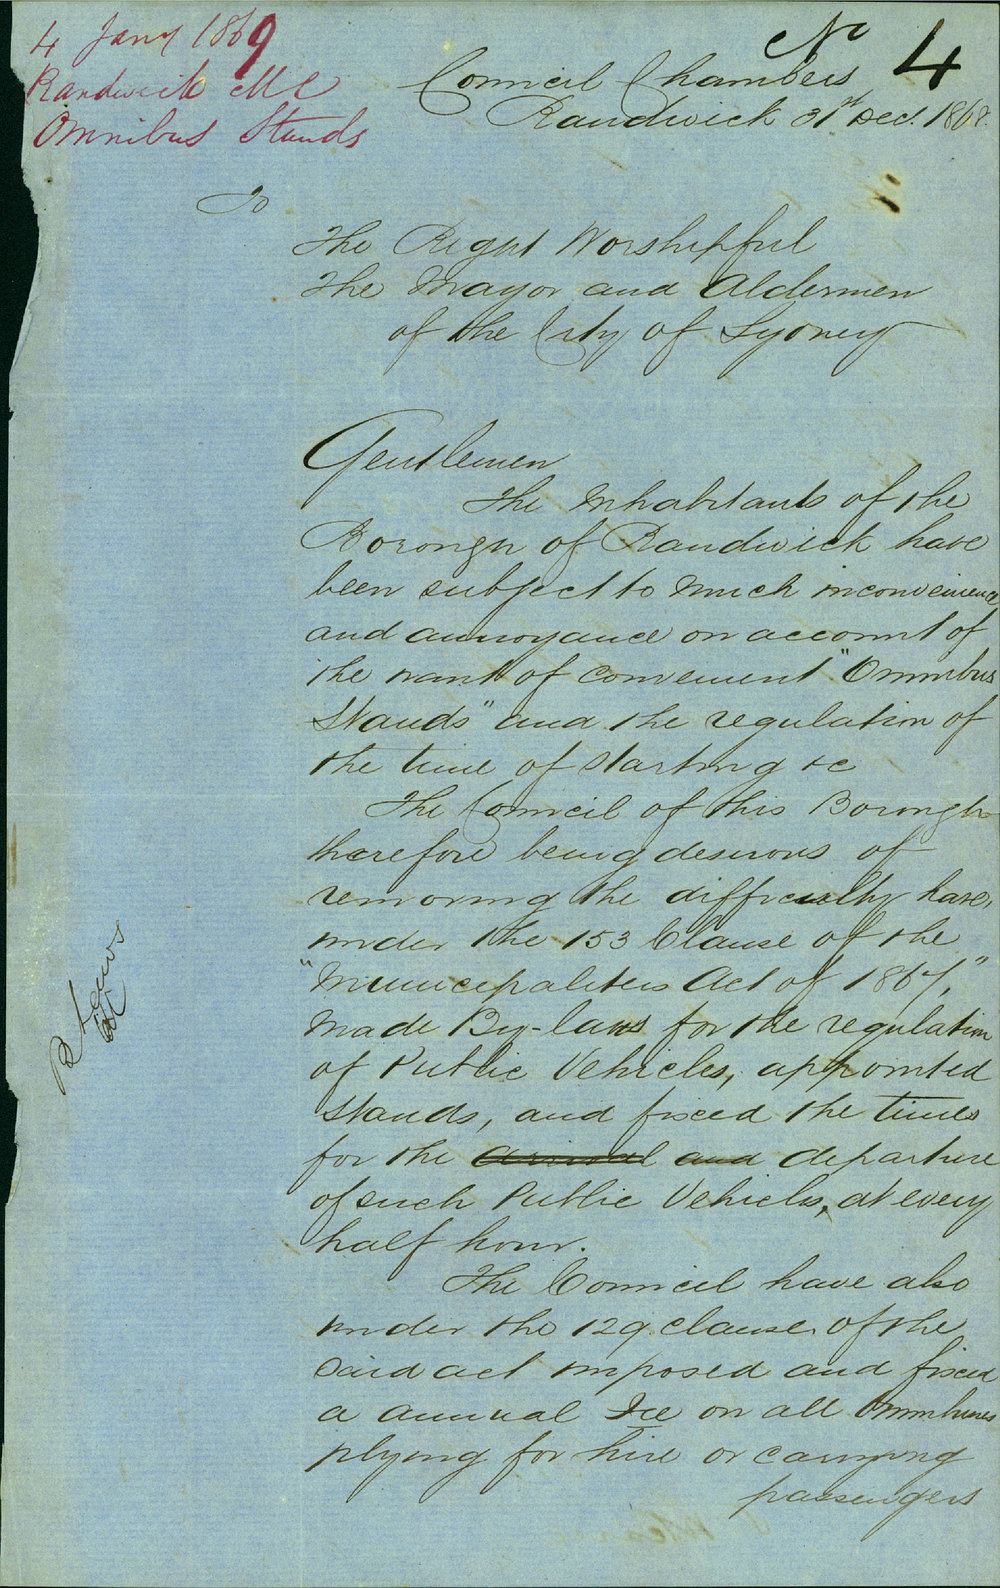 4 Jany 1869
Randwick MC
Omnibus Stands
No 4
Council Chambers
Randwick 31st Dec. 1868.
To
The Right Worshipful
The Mayor and Aldermen
of the City of Sydney
Gentlemen
The Inhabitants of the
Borough of Randwick have
been subject to much inconvenience
and annoyance on account of
the want of convenient "Omnibus
Stands" and the regulation of
the time of starting &c
The Council of this Borough
therefore being desirous of
removing the difficulty have,
under the 153 Clause of the
"Municipalities Act of 1867,"
made By-laws for the regulation
of Public Vehicles, appointed
Stands, and fixed the times
for the arrival and departure
of such Public Vehicles, at every
half hour.
The Council have also
under the 129 clause of the
said act imposed and fixed
a annual Fee on all Omnibuses
plying for hire or carrying
passengers